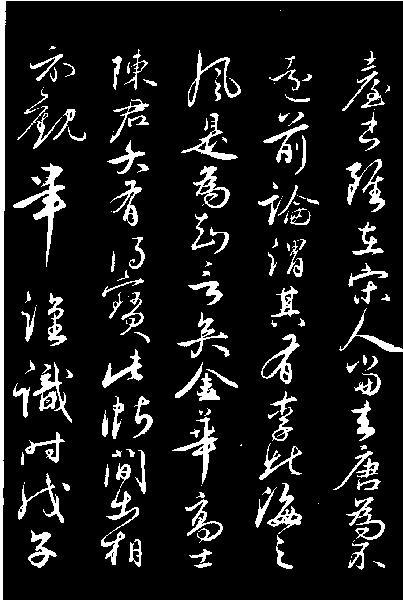 臺書雖在宋人當去唐為不
遠前論謂其有李北海之
風是為知言矣金華高士
陳君大有得寶此帖間出相
示觀畢謹識時戊子